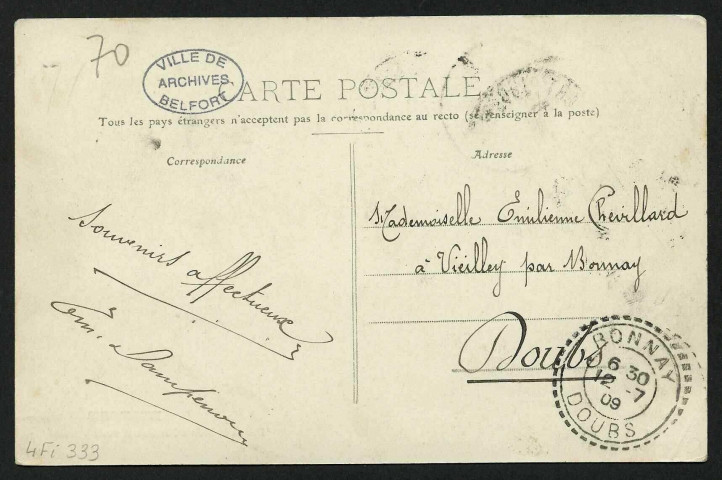 70
VILLE DE
ARCHIVES
BELFORT
CARTE POSTALE
Tous les pays étrangers n'acceptent pas la correspondance au recto (se renseigner à la poste)
Correspondance
Adresse
Souvenirs affectueux
Em.
Mademoiselle Emilienne Chevillard
à Vieilley par Bonnay
Doubs
BONNAY
6 30
12 - 7
09
DOUBS
4Fi 333